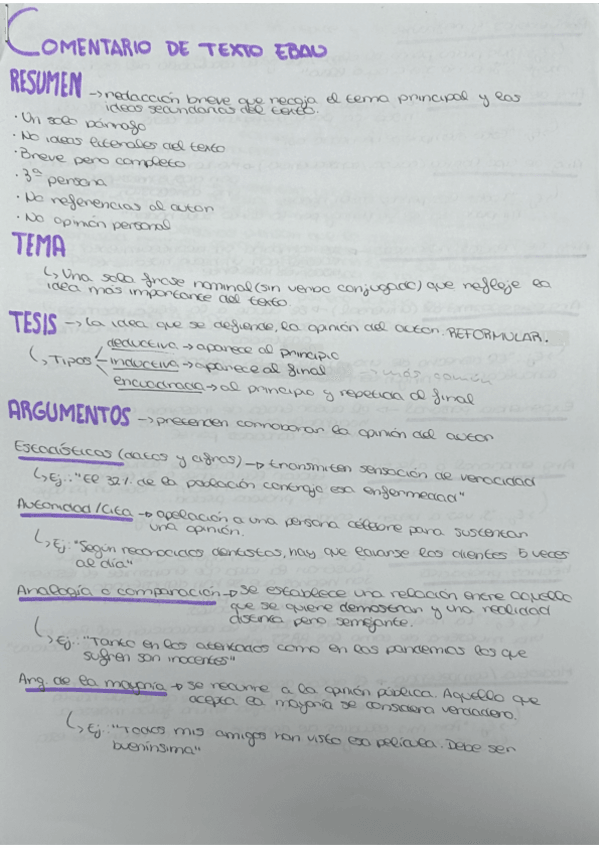 COMENTARIO DE TEXTO EBAU
RESUMEN → redacción breve que recoja el tema principal y las
ideas secundarias del texto.
· Un solo párrafo
· No ideas literales del texto
· Breve pero completo
· 3ª persona
· No referencias al autor
· No opinión personal
TEMA
↳ Una sola frase nominal (sin verbo conjugado) que refleje la
idea más importante del texto.
TESIS → La idea que se defiende, la opinión del autor. REFORMULAR.
deductiva → aparece al principio
↳ Tipos inductiva → aparece al final → más común
encuadrada → al principio y repetida al final
ARGUMENTOS → pretenden corroborar la opinión del autor
Estadísticas (datos y cifras) → transmiten sensación de veracidad
↳ Ej.: "El 32% de la población contrajo esa enfermedad"
Autoridad/Cita → apelación a una persona célebre para sustentar
una opinión.
↳ Ej: "Según reconocidos dentistas, hay que lavarse los dientes 5 veces
al día"
Analogía o comparación → se establece una relación entre aquello
que se quiere demostrar y una realidad
distinta pero semejante.
↳ Ej.: "Tanto en los atentados como en las pandemias los que
sufren son inocentes"
Arg. de la mayoría → se recurre a la opinión pública. Aquello que
acepta la mayoría se considera verdadero.
↳ Ej.: "Todos mis amigos han visto esa película. Debe ser
buenínsima"